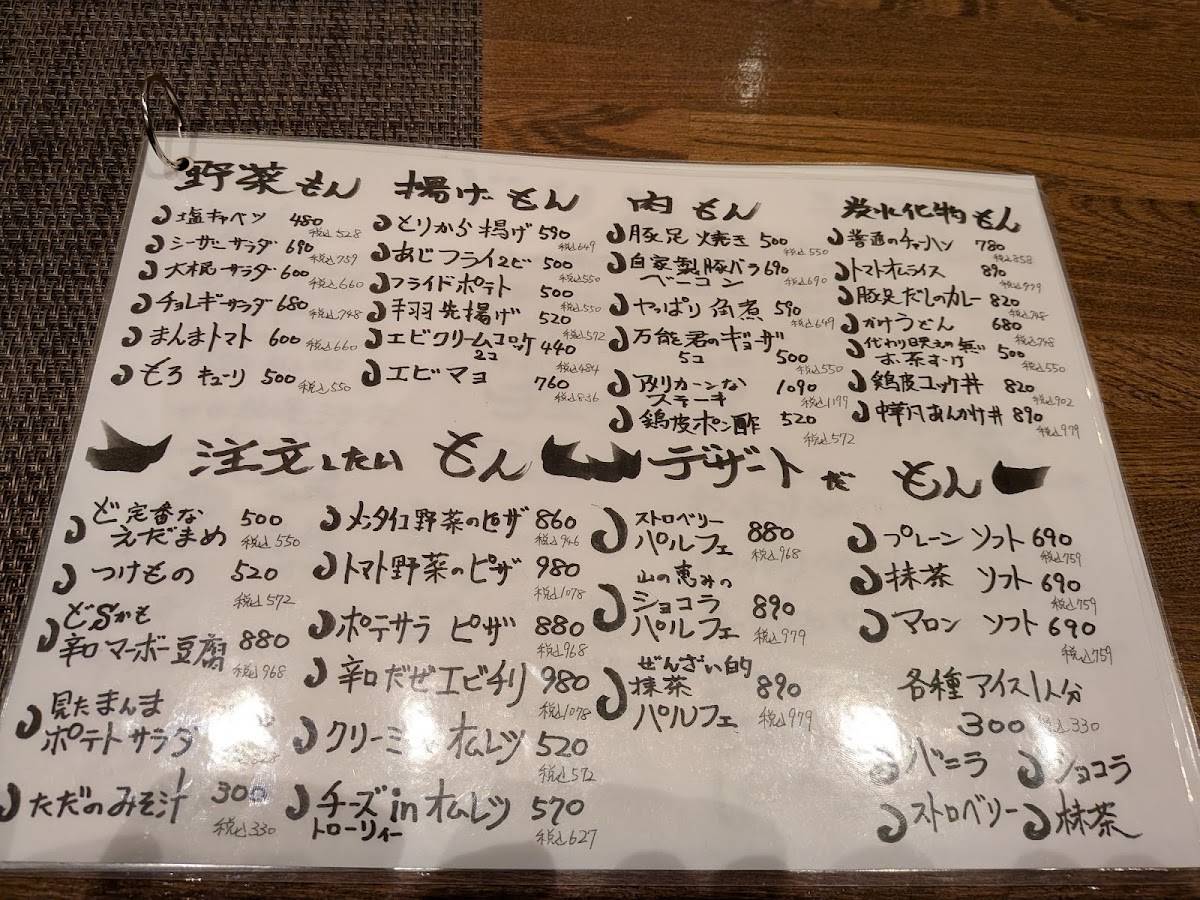 野菜もん
塩キャベツ 480
税込528
シーザーサラダ 690
税込759
大根サラダ 600
税込660
チョレギサラダ 680
税込748
まんまトマト 600
税込660
もろキューリ 500
税込550
揚げもん
とりから揚げ 590
税込649
あじフライ2ピ 500
税込550
フライドポテト 500
税込550
手羽先揚げ 520
税込572
エビクリームコロッケ 440
2コ
税込484
エビマヨ 760
税込836
肉もん
豚足焼き 500
税込550
自家製豚バラ 690
ベーコン
税込690
やっぱり角煮 590
税込649
万能君のギョーザ
5コ 500
税込550
アメリカーンな 1090
ステーキ
税込1199
鶏皮ポン酢 520
税込572
炭水化物もん
普通のチャーハン 780
税込858
トマトオムライス 890
税込979
豚足だしのカレー 820
税込748
かけうどん 680
税込748
代わり映えの無い
お茶すけ 500
税込550
鶏皮コッケ丼 820
税込902
中華風あんかけ丼 890
税込979
注文したいもん
ど定番な
えだまめ 500
税込550
つけもの 520
税込572
どSかも
辛口マーボー豆腐 880
税込968
見たまんま
ポテトサラダ
ただのみそ汁 300
税込330
メンタイコ野菜のピザ 860
税込946
トマト野菜のピザ 980
税込1078
ポテサラピザ 880
税込968
辛口だぜエビチリ 980
税込1078
クリーミーオムレツ 520
税込572
チーズinオムレツ 570
トローリィー
税込627
デザートだもん
ストロベリー
パルフェ 880
税込968
山の恵みの
ショコラ
パルフェ 890
税込979
ぜんざい的
抹茶
パルフェ 890
税込979
プレーンソフト 690
税込759
抹茶ソフト 690
税込759
マロンソフト 690
税込759
各種アイス1人分
300 税込330
バニラ ショコラ
ストロベリー 抹茶